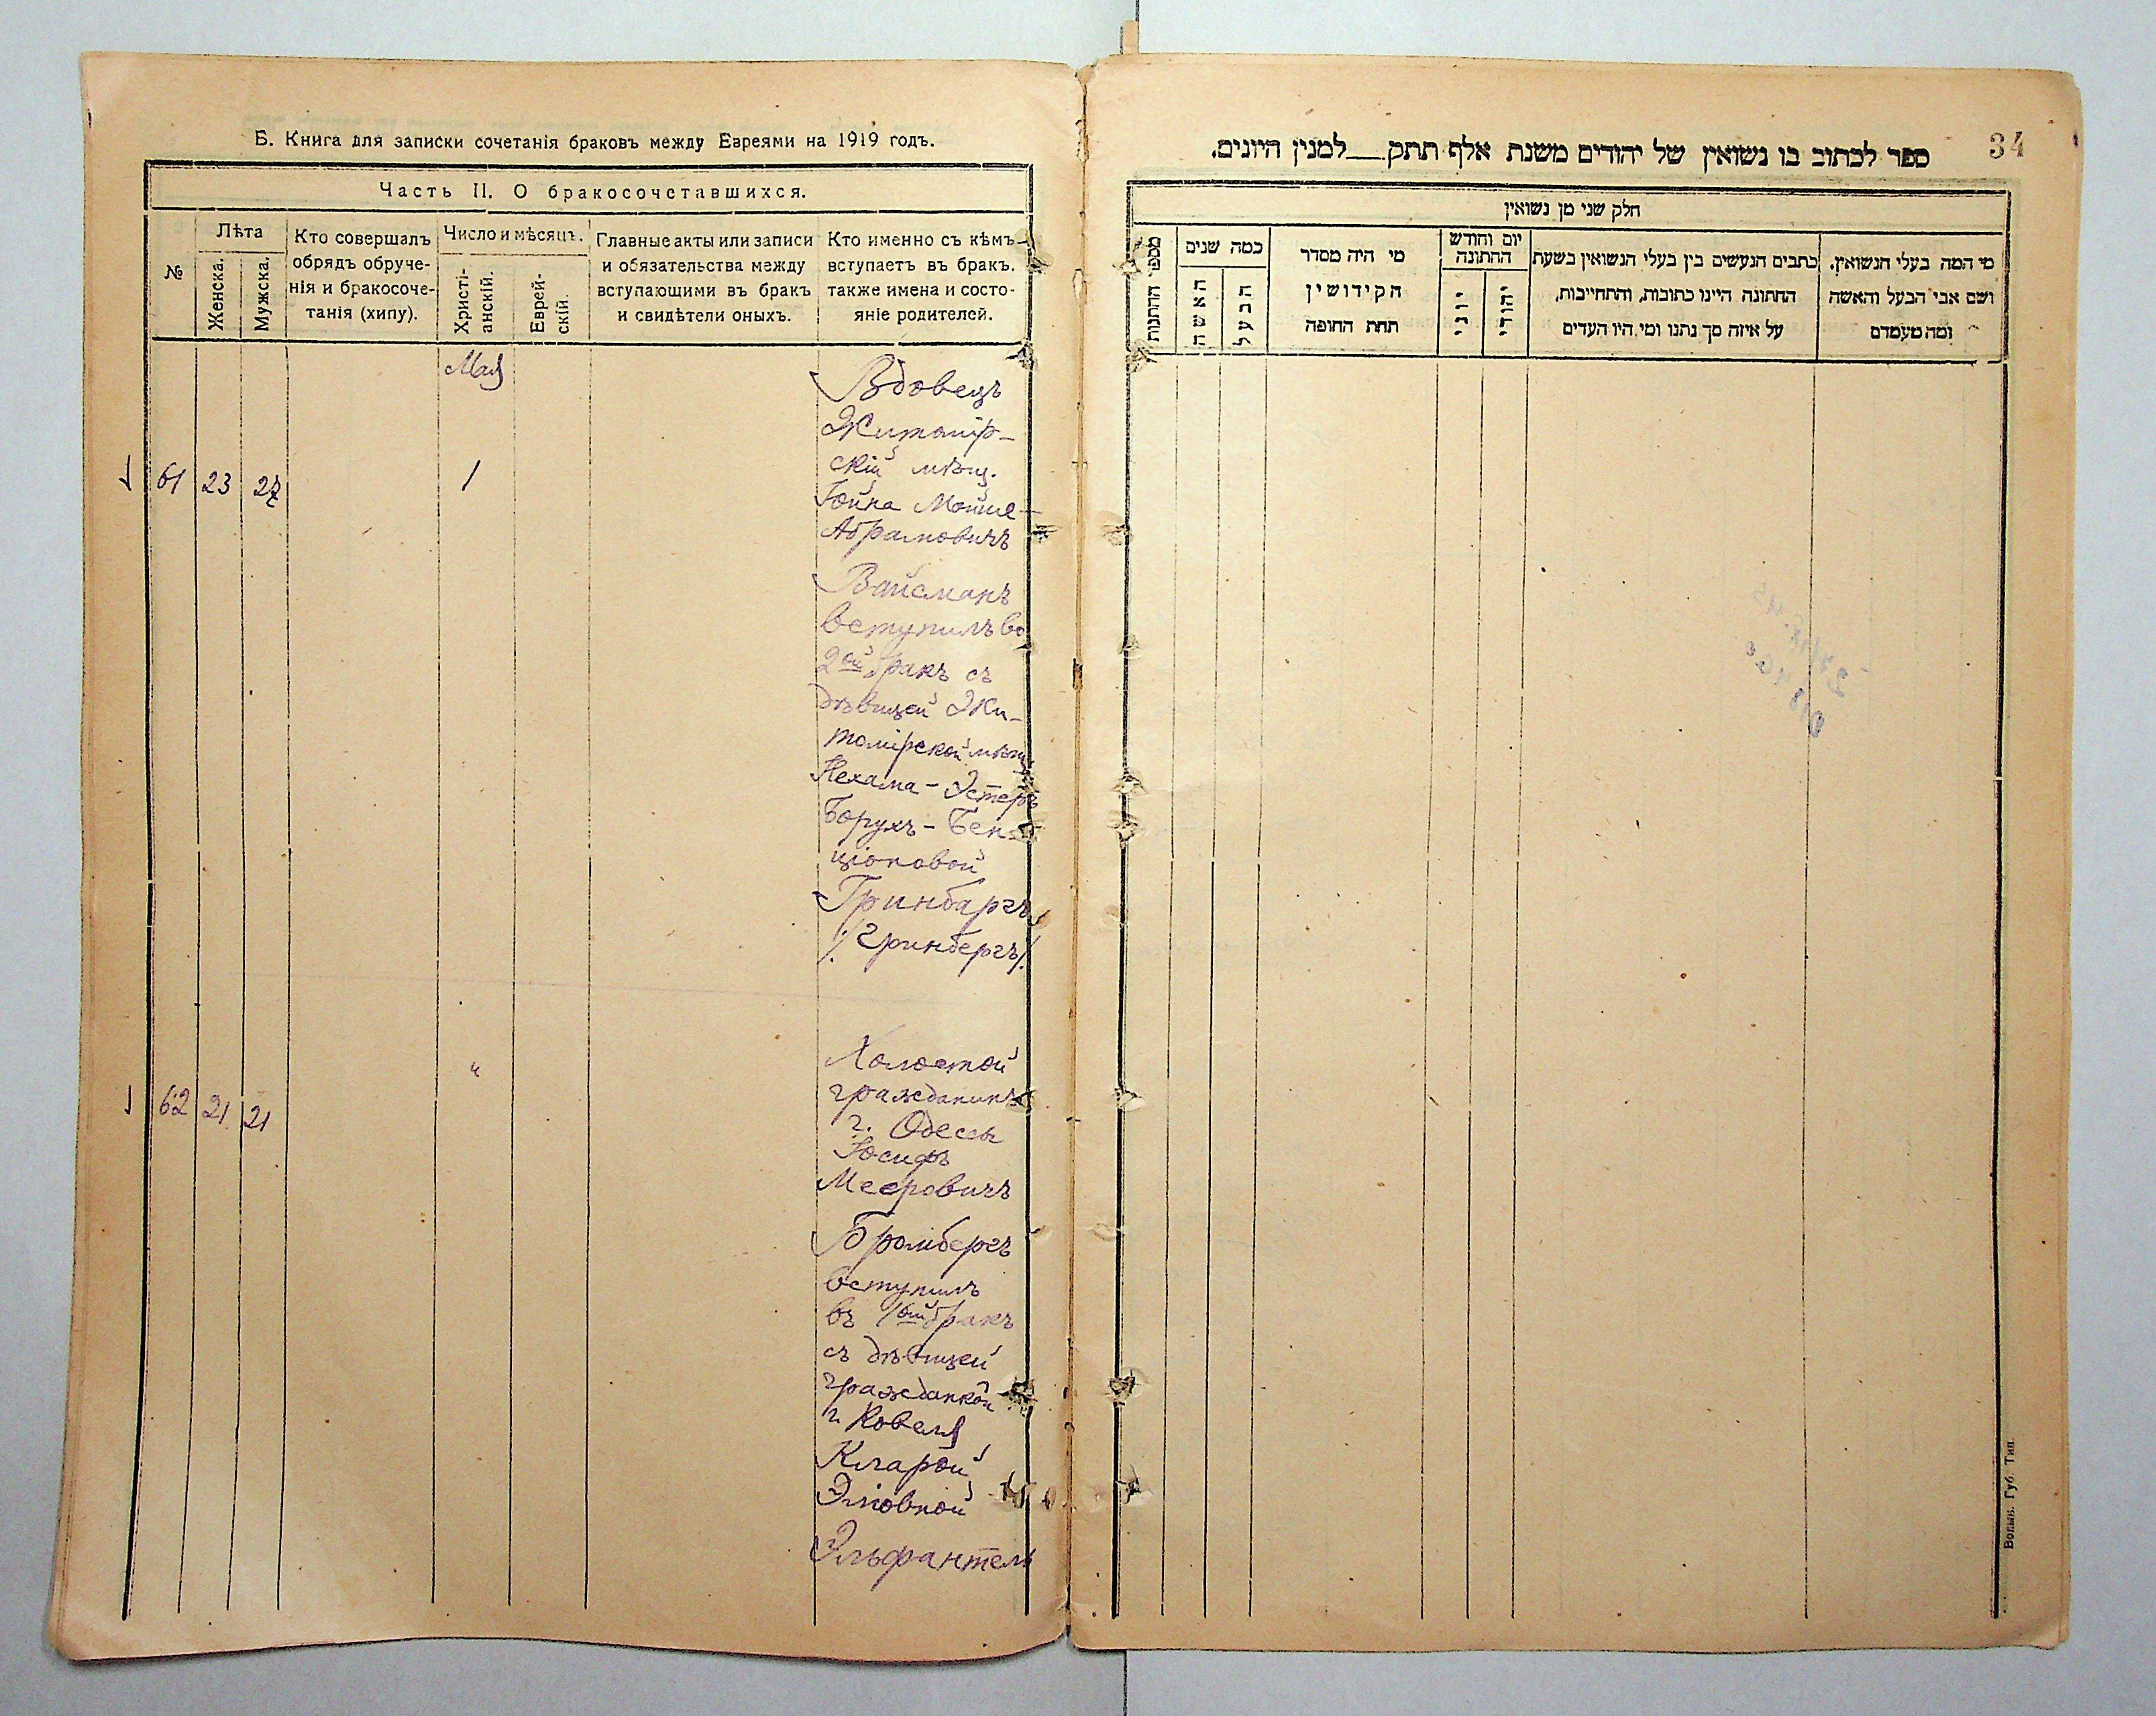 Б. Книга для записки сочетанія браковъ между Евреями на 1919 годъ.
Часть II. О бракосочетавшихся.
№
Лѣта
Женска.
Мужска.
Кто совершалъ
обрядъ обруче-
нія и бракосоче-
танія (хипу).
Число и мѣсяцъ.
Христі-
анскій.
Еврей-
скій.
Главные акты или записи
и обязательства между
вступающими въ бракъ
и свидѣтели оныхъ.
Кто именно съ кѣмъ
вступаетъ въ бракъ.
также имена и состо-
яніе родителей.
Мая
Вдовецъ
Житомір-
скій мѣщ.
61 23 27 1
Іойна Мойше-
Абрамовичъ
Вайсманъ
вступилъ во
2ой бракъ съ
дѣвицей Жи-
томірской мѣщ.
Нехама-Эстеръ
Борухъ-Бен-
ціоновой
Гринбаргъ
/Гринбергъ/
Холостой
гражданинъ
62 21 21 "
г. Одессы
Іосифъ
Мееровичъ
Бромбергъ
вступилъ
въ 1ой бракъ
съ дѣвицей
гражданкой
г. Ковеля
Кларой
Эліовной
Эльфантель
34
ספר לכתוב בו נשואין של יהודים משנת אלף תתק__למנין היונים.
חלק שני מן נשואין
מספר החתנות
כמה שנים
האשה
הבעל
מי היה מסדר
הקידושין
תחת החופה
יום וחודש
החתונה
יוני
יהודי
כתבים הנעשים בין בעלי הנשואין בשעת
החתונה היינו כתובות, והתחייבות,
על איזה סך נתנו ומי היו העדים
מי המה בעלי הנשואין.
ושם אבי הבעל והאשה
ומה מעמדם
Волын. Губ. Тип.